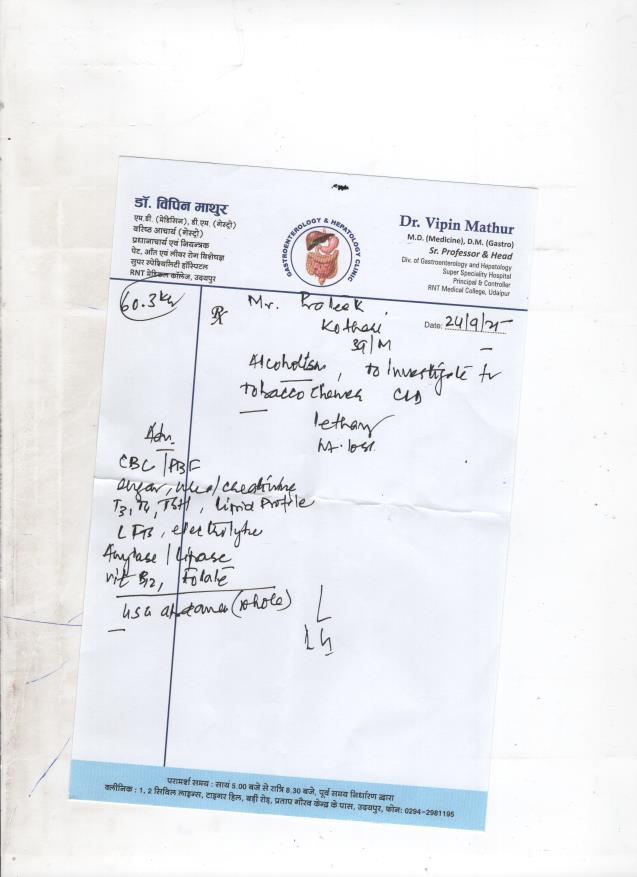 डॉ. विपिन माथुर
एम.डी. (मेडिसिन), डी.एम. (गेस्ट्रो)
वरिष्ठ आचार्य (गेस्ट्रो)
प्रधानाचार्य एवं नियन्त्रक
पेट, आँत एवं लीवर रोग विशेषज्ञ
सुपर स्पेश्यिलिटी हॉस्पिटल
RNT मेडिकल कॉलेज, उदयपुर
GASTROENTEROLOGY & HEPATOLOGY CLINIC
Dr. Vipin Mathur
M.D. (Medicine), D.M. (Gastro)
Sr. Professor & Head
Div. of Gastroenterology and Hepatology
Super Speciality Hospital
Principal & Controller
RNT Medical College, Udaipur
60.3 kg
Rx
Mr. Prateek
Kothari
39/M
Date: 24/9/25
Alcoholism, to investigate for
tobacco chewer CLD
lethargy
wt. loss
Adv.
CBC/PBF
Sugar, urea/creatinine
T3, T4, TSH, Lipid Profile
LFTs, electrolyte
Amylase/Lipase
vit B12, Folate
USG abdomen (whole)
परामर्श समय : सायं 5.00 बजे से रात्रि 8.30 बजे, पूर्व समय निर्धारण द्वारा
क्लीनिक : 1, 2 सिविल लाइन्स, टाइगर हिल, बड़ी रोड़, प्रताप गौरव केन्द्र के पास, उदयपुर, फोन: 0294-2981195